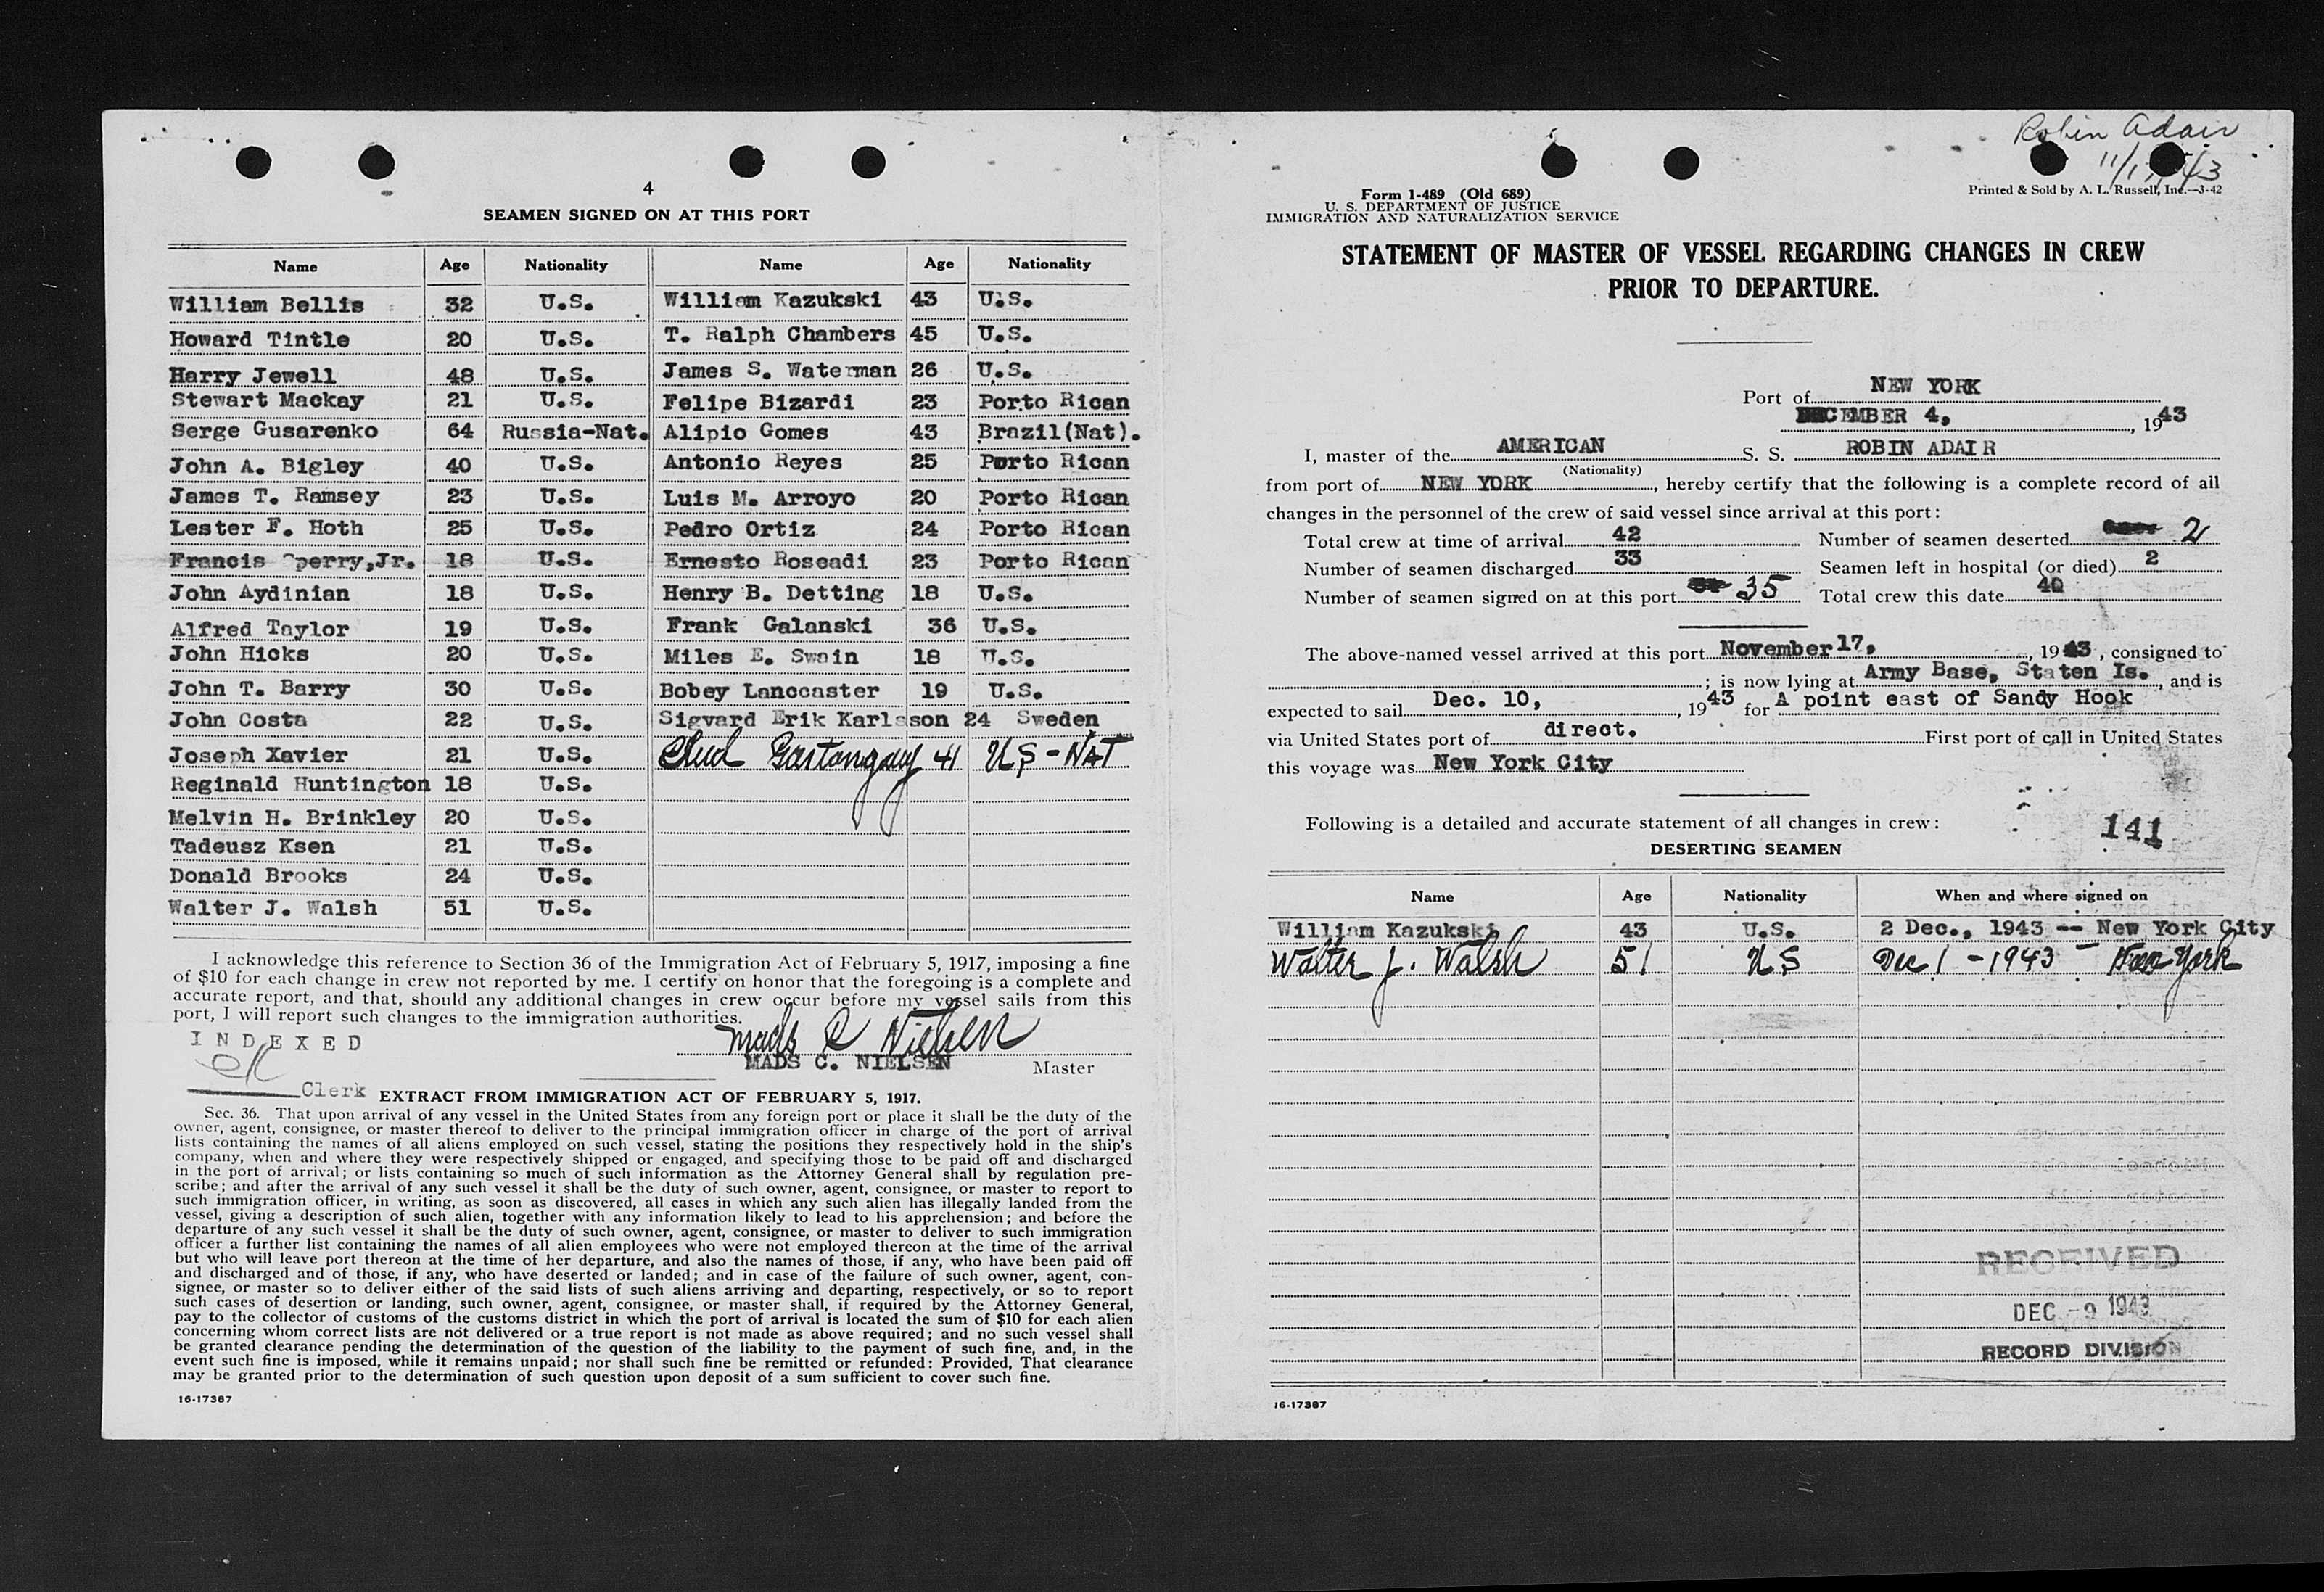 4
SEAMEN SIGNED ON AT THIS PORT
Name Age Nationality Name Age Nationality
William Bellis 32 U.S. William Kazukski 43 U.S.
Howard Tintle 20 U.S. T. Ralph Chambers 45 U.S.
Harry Jewell 48 U.S. James S. Waterman 26 U.S.
Stewart Mackay 21 U.S. Felipe Bizardi 23 Porto Rican
Serge Gusarenko 64 Russia-Nat. Alipio Gomes 43 Brazil(Nat).
John A. Bigley 40 U.S. Antonio Reyes 25 Porto Rican
James T. Ramsey 23 U.S. Luis M. Arroyo 20 Porto Rican
Lester F. Hoth 25 U.S. Pedro Ortiz 24 Porto Rican
Francis Sperry,Jr. 18 U.S. Ernesto Roseadi 23 Porto Rican
John Aydinian 18 U.S. Henry B. Detting 18 U.S.
Alfred Taylor 19 U.S. Frank Galanski 36 U.S.
John Hicks 20 U.S. Miles E. Swain 18 U.S.
John T. Barry 30 U.S. Bobey Lanccaster 19 U.S.
John Costa 22 U.S. Sigvard Erik Karlsson 24 Sweden
Joseph Xavier 21 U.S. Gastonguay 41 US-NAT
Reginald Huntington 18 U.S.
Melvin H. Brinkley 20 U.S.
Tadeusz Ksen 21 U.S.
Donald Brooks 24 U.S.
Walter J. Walsh 51 U.S.
I acknowledge this reference to Section 36 of the Immigration Act of February 5, 1917, imposing a fine
of $10 for each change in crew not reported by me. I certify on honor that the foregoing is a complete and
accurate report, and that, should any additional changes in crew occur before my vessel sails from this
port, I will report such changes to the immigration authorities.
Mads C Nielsen
INDEXED
MADS C. NIELSEN Master
Clerk
EXTRACT FROM IMMIGRATION ACT OF FEBRUARY 5, 1917.
Sec. 36. That upon arrival of any vessel in the United States from any foreign port or place it shall be the duty of the
owner, agent, consignee, or master thereof to deliver to the principal immigration officer in charge of the port of arrival
lists containing the names of all aliens employed on such vessel, stating the positions they respectively hold in the ship's
company, when and where they were respectively shipped or engaged, and specifying those to be paid off and discharged
in the port of arrival; or lists containing so much of such information as the Attorney General shall by regulation pre-
scribe; and after the arrival of any such vessel it shall be the duty of such owner, agent, consignee, or master to report to
such immigration officer, in writing, as soon as discovered, all cases in which any such alien has illegally landed from the
vessel, giving a description of such alien, together with any information likely to lead to his apprehension; and before the
departure of any such vessel it shall be the duty of such owner, agent, consignee, or master to deliver to such immigration
officer a further list containing the names of all alien employees who were not employed thereon at the time of the arrival
but who will leave port thereon at the time of her departure, and also the names of those, if any, who have been paid off
and discharged and of those, if any, who have deserted or landed; and in case of the failure of such owner, agent, con-
signee, or master so to deliver either of the said lists of such aliens arriving and departing, respectively, or so to report
such cases of desertion or landing, such owner, agent, consignee, or master shall, if required by the Attorney General,
pay to the collector of customs of the customs district in which the port of arrival is located the sum of $10 for each alien
concerning whom correct lists are not delivered or a true report is not made as above required; and no such vessel shall
be granted clearance pending the determination of the question of the liability to the payment of such fine, and, in the
event such fine is imposed, while it remains unpaid; nor shall such fine be remitted or refunded: Provided, That clearance
may be granted prior to the determination of such question upon deposit of a sum sufficient to cover such fine.
16-17387
Robin Adair
11/17/43
Form 1-489 (Old 689)
U. S. DEPARTMENT OF JUSTICE
IMMIGRATION AND NATURALIZATION SERVICE
Printed & Sold by A. L. Russell, Inc.—3-42
STATEMENT OF MASTER OF VESSEL REGARDING CHANGES IN CREW
PRIOR TO DEPARTURE.
Port of NEW YORK
DECEMBER 4, , 1943
I, master of the AMERICAN S. S. ROBIN ADAIR
(Nationality)
from port of NEW YORK , hereby certify that the following is a complete record of all
changes in the personnel of the crew of said vessel since arrival at this port:
Total crew at time of arrival 42 Number of seamen deserted 2
Number of seamen discharged 33 Seamen left in hospital (or died) 2
Number of seamen signed on at this port 35 Total crew this date 40
The above-named vessel arrived at this port November 17, , 1943, consigned to
; is now lying at Army Base, Staten Is. , and is
expected to sail Dec. 10, , 1943 for A point east of Sandy Hook
via United States port of direct. First port of call in United States
this voyage was New York City
Following is a detailed and accurate statement of all changes in crew:
141
DESERTING SEAMEN
Name Age Nationality When and where signed on
William Kazukski 43 U.S. 2 Dec., 1943 -- New York City
Walter J. Walsh 51 US Dec 1 - 1943 - New York
RECEIVED
DEC -9 1943
RECORD DIVISION
16-17387